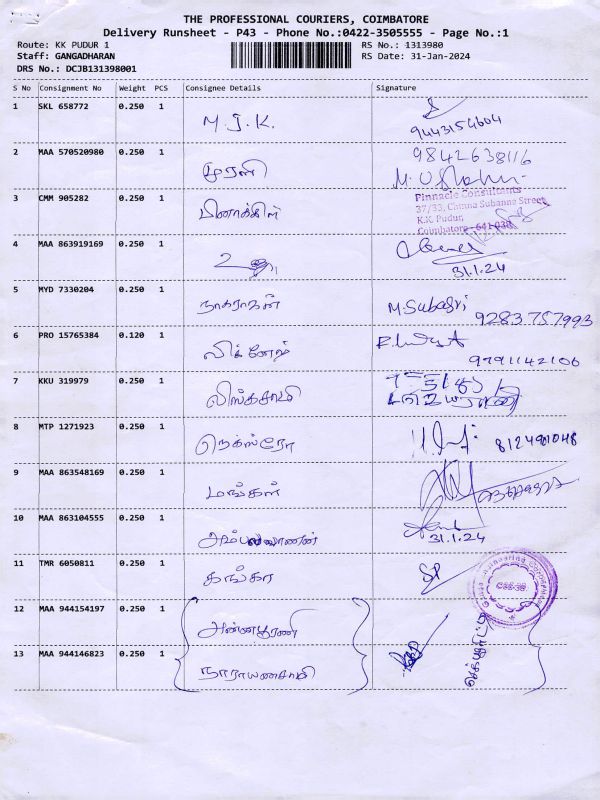 THE PROFESSIONAL COURIERS, COIMBATORE
Delivery Runsheet - P43 - Phone No.:0422-3505555 - Page No.:1
Route: KK PUDUR 1
RS No.: 1313980
Staff: GANGADHARAN
RS Date: 31-Jan-2024
DRS No.: DCJB131398001
S No Consignment No Weight PCS Consignee Details Signature
1 SKL 658772 0.250 1 M.J.K.
9443154604
2 MAA 570520980 0.250 1 முரளி 9842638116
3 CMM 905282 0.250 1 பினாக்கிள்
Pinnacle Consultants
37/33, Chinna Subanna Street
K.K Pudur,
Coimbatore - 641 038
4 MAA 863919169 0.250 1
31.1.24
5 MYD 7330204 0.250 1 நாகராஜன் M.Subasri
9283757993
6 PRO 15765384 0.120 1 விக்னேஷ்
9791142106
7 KKU 319979 0.250 1 லிங்கசாமி
8 MTP 1271923 0.250 1 நெக்ஸ்ரோ 8124901048
9 MAA 863548169 0.250 1 மங்கள்
10 MAA 863104555 0.250 1
31.1.24
11 TMR 6050811 0.250 1 கங்கா SP
12 MAA 944154197 0.250 1 அன்னபூரணி
13 MAA 944146823 0.250 1 நாராயணசாமி